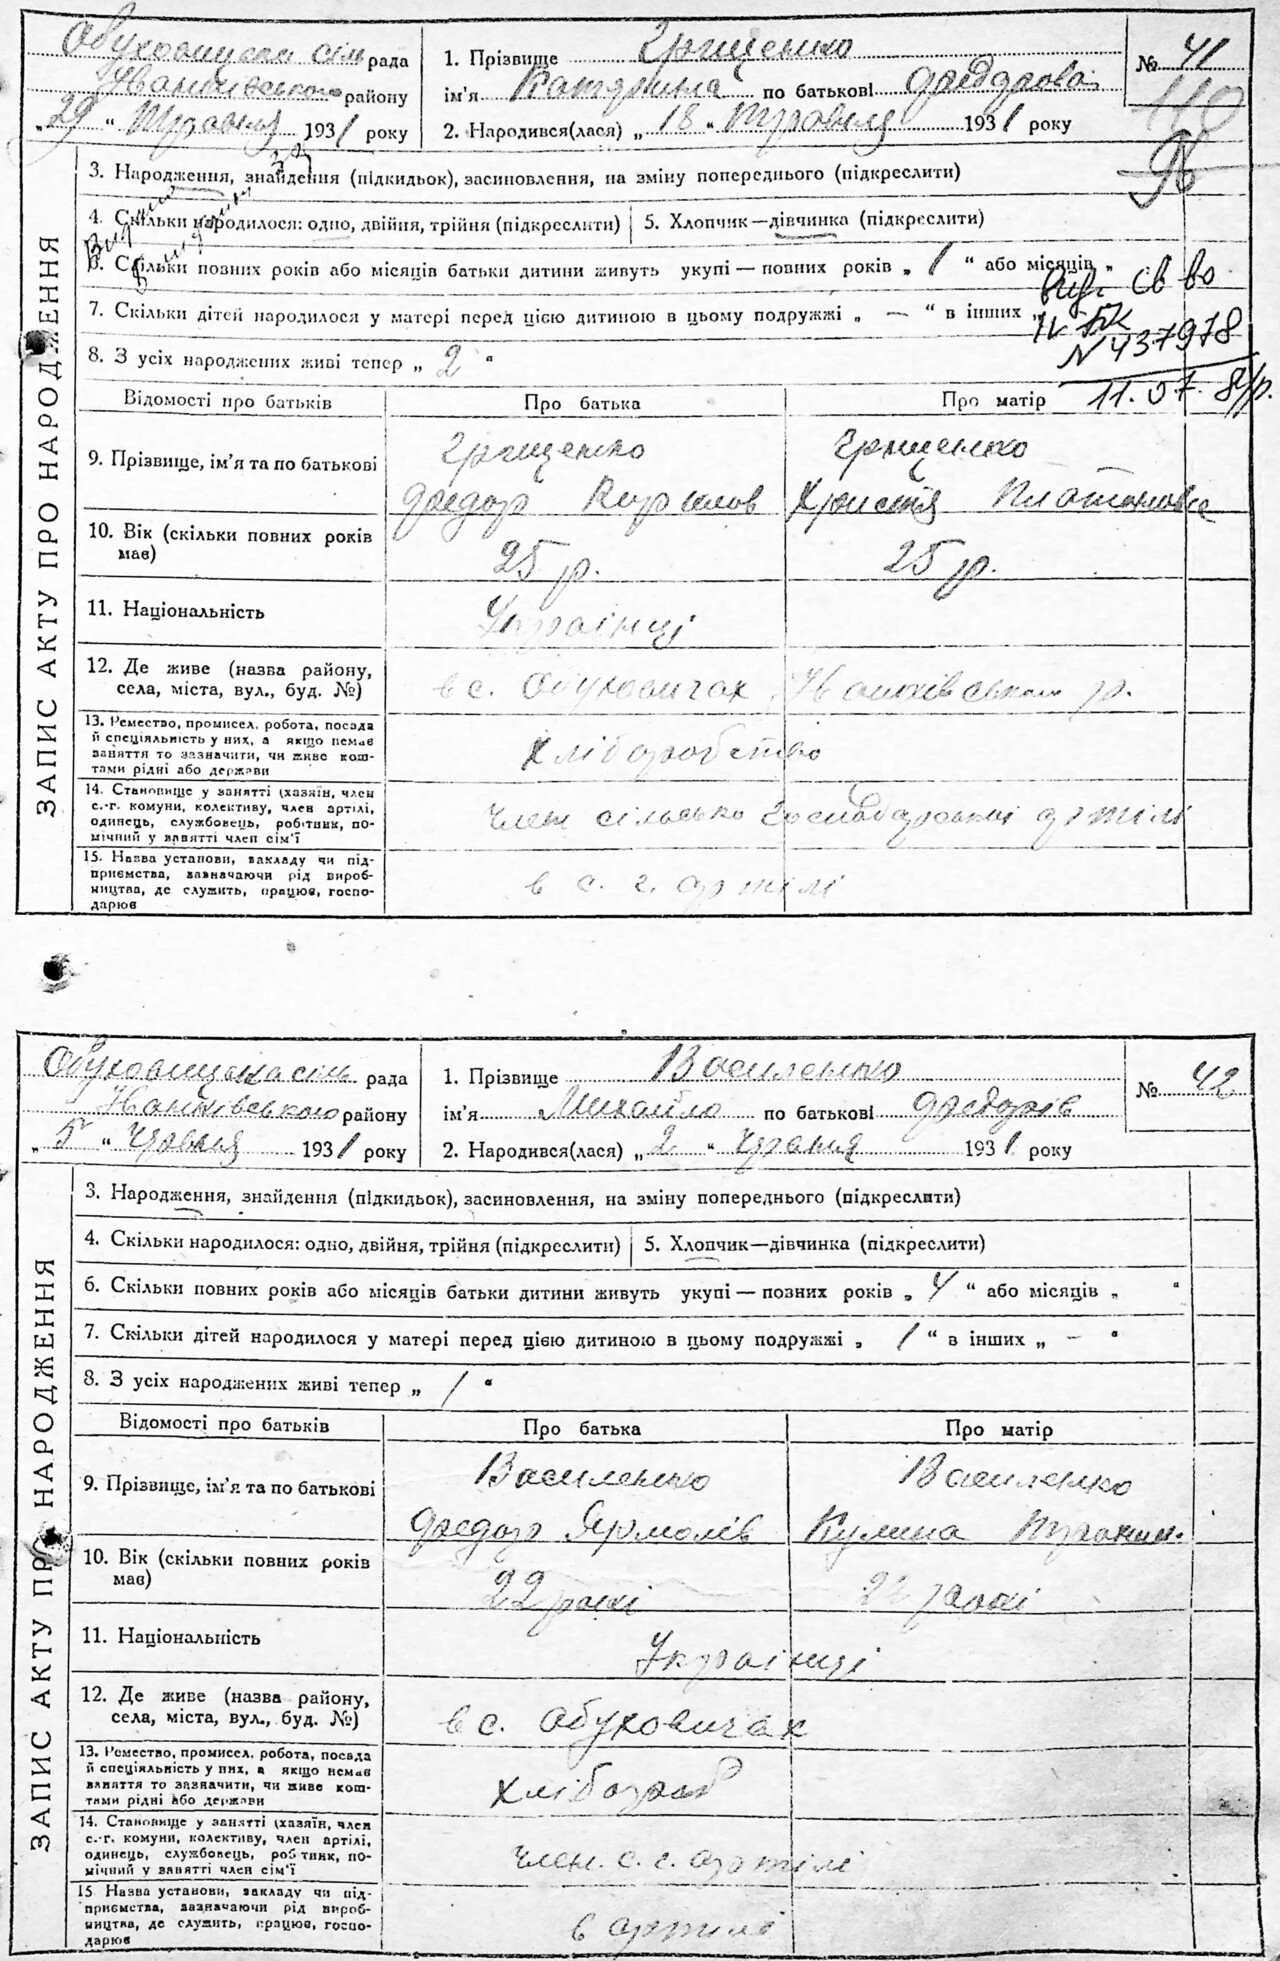 Обуховицька сіль рада
Іванківського району
„ 29 “ Травня 1931 року
1. Прізвище Грищенко
ім'я Катерина по батькові Федорова
2. Народився(лася) „ 18 “ Травня 1931 року
№ 41
110
96
ЗАПИС АКТУ ПРО НАРОДЖЕННЯ
3. Народження, знайдення (підкидьок), засиновлення, на зміну попереднього (підкреслити)
4. Скільки народилося: одно, двійня, трійня (підкреслити) 5. Хлопчик—дівчинка (підкреслити)
6. Скільки повних років або місяців батьки дитини живуть укупі — повних років „ 1 “ або місяців „
7. Скільки дітей народилося у матері перед цією дитиною в цьому подружжі „ — “ в інших „
8. З усіх народжених живі тепер „ 2 “
св во
N 437978
11.07.
Відомості про батьків Про батька Про матір
9. Прізвище, ім'я та по батькові
Грищенко Грищенко
Федор Кирилов Христя Платоновна
10. Вік (скільки повних років має)
25 р. 25 р.
11. Національність Українці
12. Де живе (назва району, села, міста, вул., буд. №)
в с. Обуховичах Іванківським р.
13. Ремество, промисел, робота, посада й спеціяльність у них, а якщо немає заняття то зазначити, чи живе коштами рідні або держави
Хліборобство
14. Становище у занятті (хазяїн, член с.-г. комуни, колективу, член артілі, одинець, службовець, робітник, помічний у занятті член сім'ї
член сільсько господарської артілі
15. Назва установи, закладу чи підприємства, зазначаючи рід виробництва, де служить, працює, господарює
в с. г. артілі
Обуховицька сіль рада
Іванківського району
„ 5 “ Червня 1931 року
1. Прізвище Василенко
ім'я Михайло по батькові Федорів
2. Народився(лася) „ 2 “ Червня 1931 року
№ 42
ЗАПИС АКТУ ПРО НАРОДЖЕННЯ
3. Народження, знайдення (підкидьок), засиновлення, на зміну попереднього (підкреслити)
4. Скільки народилося: одно, двійня, трійня (підкреслити) 5. Хлопчик—дівчинка (підкреслити)
6. Скільки повних років або місяців батьки дитини живуть укупі — повних років „ 4 “ або місяців „ “
7. Скільки дітей народилося у матері перед цією дитиною в цьому подружжі „ 1 “ в інших „ - “
8. З усіх народжених живі тепер „ 1 “
Відомості про батьків Про батька Про матір
9. Прізвище, ім'я та по батькові
Василенко Василенко
Федор Ярмолів Кулина
10. Вік (скільки повних років має)
22 роки 22 роки
11. Національність Українці
12. Де живе (назва району, села, міста, вул., буд. №)
в с. Обуховичах
13. Ремество, промисел, робота, посада й спеціяльність у них, а якщо немає заняття то зазначити, чи живе коштами рідні або держави
Хлібороб
14. Становище у занятті (хазяїн, член с.-г. комуни, колективу, член артілі, одинець, службовець, робітник, помічний у занятті член сім'ї
член. с. г. артілі
15 Назва установи, закладу чи підприємства, зазначаючи рід виробництва, де служить, працює, господарює
в артилі